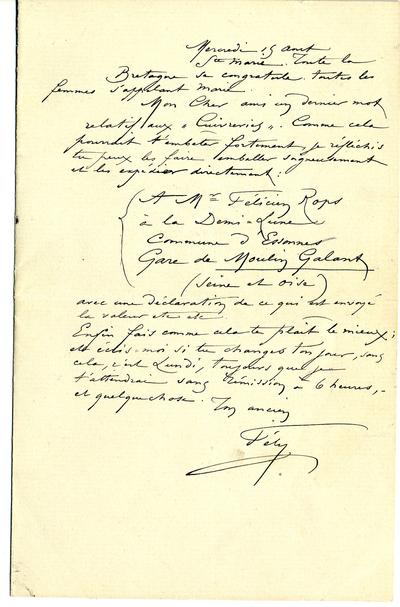 Mercredi 15 aout
Ste marie. Toute la
Bretagne se congratule. toutes les
femmes s'appelant marie.
Mon Cher ami un dernier mot
relatif aux « Cuivreries ». Comme cela
pourrait t'embêter fortement, je réfléchis
tu peux les faire emballer soigneusement
et les expédier directement :
A Mr Félicien Rops
à la Demi-Lune
Commune d'Essonnes
Gare de Moulin Galant
(Seine et Oise)
avec une déclaration de ce qui est envoyé
la valeur etc etc
Enfin fais comme cela te plaît le mieux ;
et écris-moi si tu changes ton jour, sans
cela, c'est Lundi, toujours que je
t'attendrai sans rémission à 6 heures,-
et quelque chose. Ton ancien
Fély